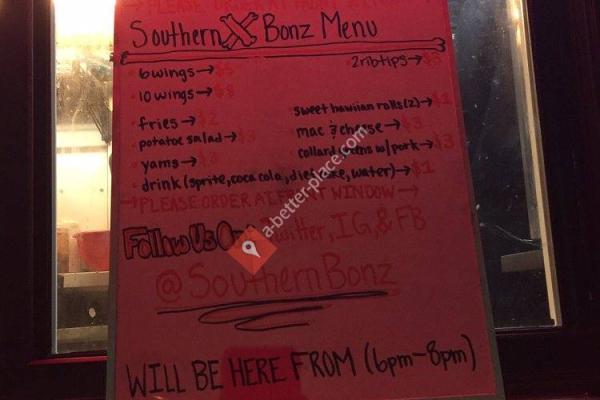 PLEASE ORDER AT FRONT WINDOW
Southern Bonz Menu
6 wings → $5
2 rib tips → $3
10 wings → $8
sweet hawiian rolls (2) → $1
fries → $2
mac & cheese → $3
potatoe salad → $3
collard greens w/ pork → $3
yams → $3
drink (sprite, coca cola, diet coke, water) → $1
→ PLEASE ORDER AT FRONT WINDOW →
Follow Us On: Twitter, IG, & FB
@SouthernBonz
WILL BE HERE FROM (6pm-8pm)
a-better-place.com